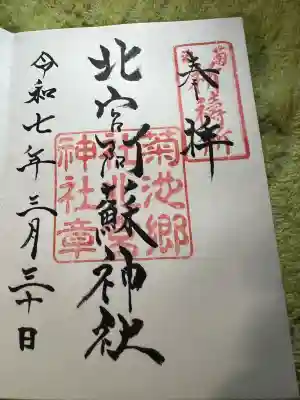 奉拝
北宮阿蘇神社
菊池郷
北宮
神社章
令和七年三月三十日